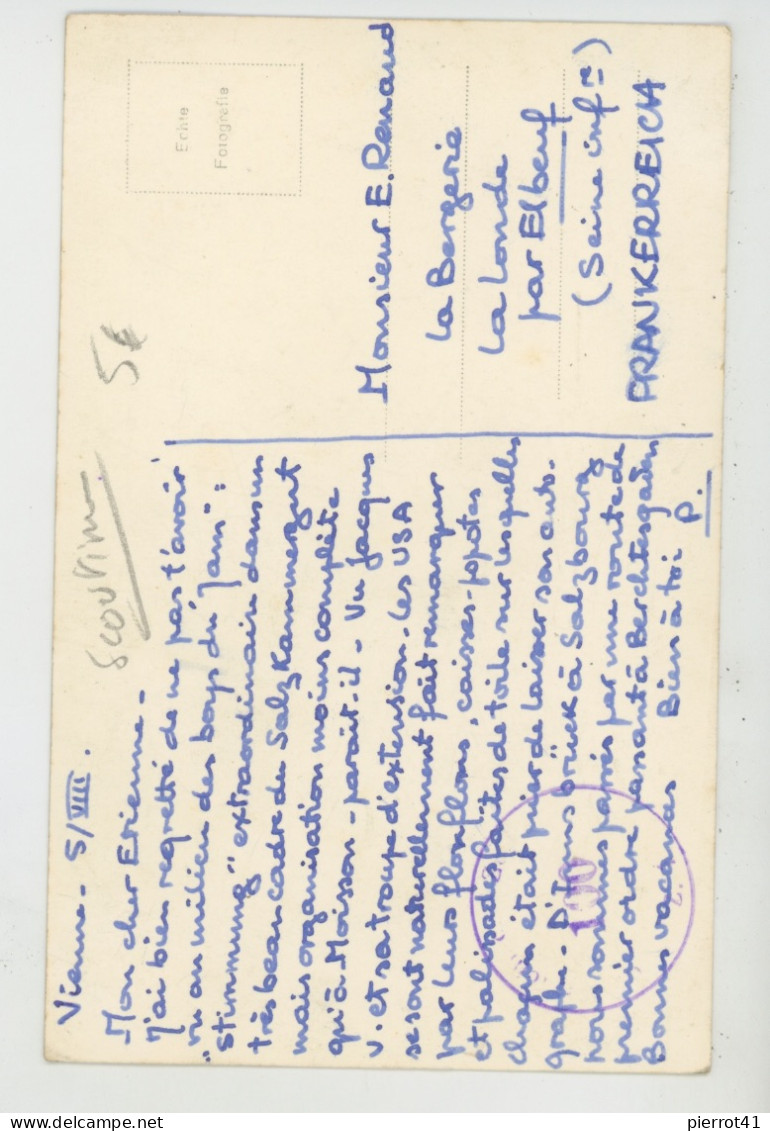 Vienne - 5/VIII.
Mon cher Etienne -
J'ai bien regretté de ne pas t'avoir
vu au milieu des boys du "jam" :
"Stimmung" extraordinaire dans un
très beau cadre du Salzkammergut
mais organisation moins complète
qu'à Moisson - paraît-il - Vu Jacques
V. et sa troupe d'extension. Les USA
se sont naturellement fait remarquer
par leurs flonflons, caisses-popotes
et palissades faites de toile sur lesquelles
chacun était prié de laisser son auto-
graphe. D'Innsbrück à Salzbourg
nous sommes passés par une route de
premier ordre passant à Berchtesgaden
Bonnes vacances Bien à toi P.
Echte
Fotografie
Monsieur E. Renaud
La Bergerie
La Londe
par Elbeuf
(Seine infre)
FRANKERREICH
scoutisme
5€
100
pierrot41